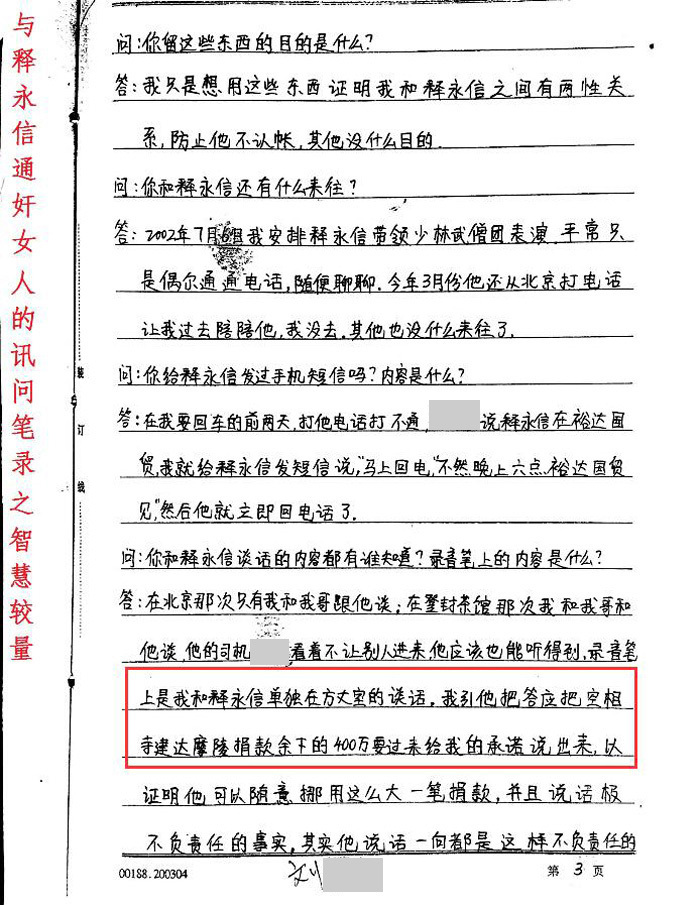 与释永信通奸女人的讯问笔录之智慧较量
问:你留这些东西的目的是什么?
答:我只是想用这些东西证明我和释永信之间有两性关
系,防止他不认帐,其他没什么目的.
问:你和释永信还有什么来往?
答:2002年7月 我安排释永信带领少林武僧团表演.平常只
是偶尔通通电话,随便聊聊.今年3月份他还从北京打电话
让我过去陪陪他,我没去.其他也没什么来往了.
问:你给释永信发过手机短信吗?内容是什么?
答:在我要回车的前两天,打他电话打不通, 说释永信在裕达国
贸,我就给释永信发短信说,"马上回电,"不然晚上六点裕达国贸
见,"然后他就立即回电话了.
问:你和释永信谈话的内容都有谁知道?录音笔上的内容是什么?
答:在北京那次只有我和我哥跟他谈;在登封茶馆那次我和我哥和
他谈,他的司机 看着不让别人进来,他应该也能听得到,录音笔
上是我和释永信单独在方丈室的谈话.我引他把答应把空相
寺建达摩陵捐款余下的400万要过来给我的承诺说出来,以
证明他可以随意挪用这么大一笔捐款,并且说话极
不负责任的事实,其实他说话一向都是这样不负责任的
装
订
线
00188.200304
刘
第 3 页